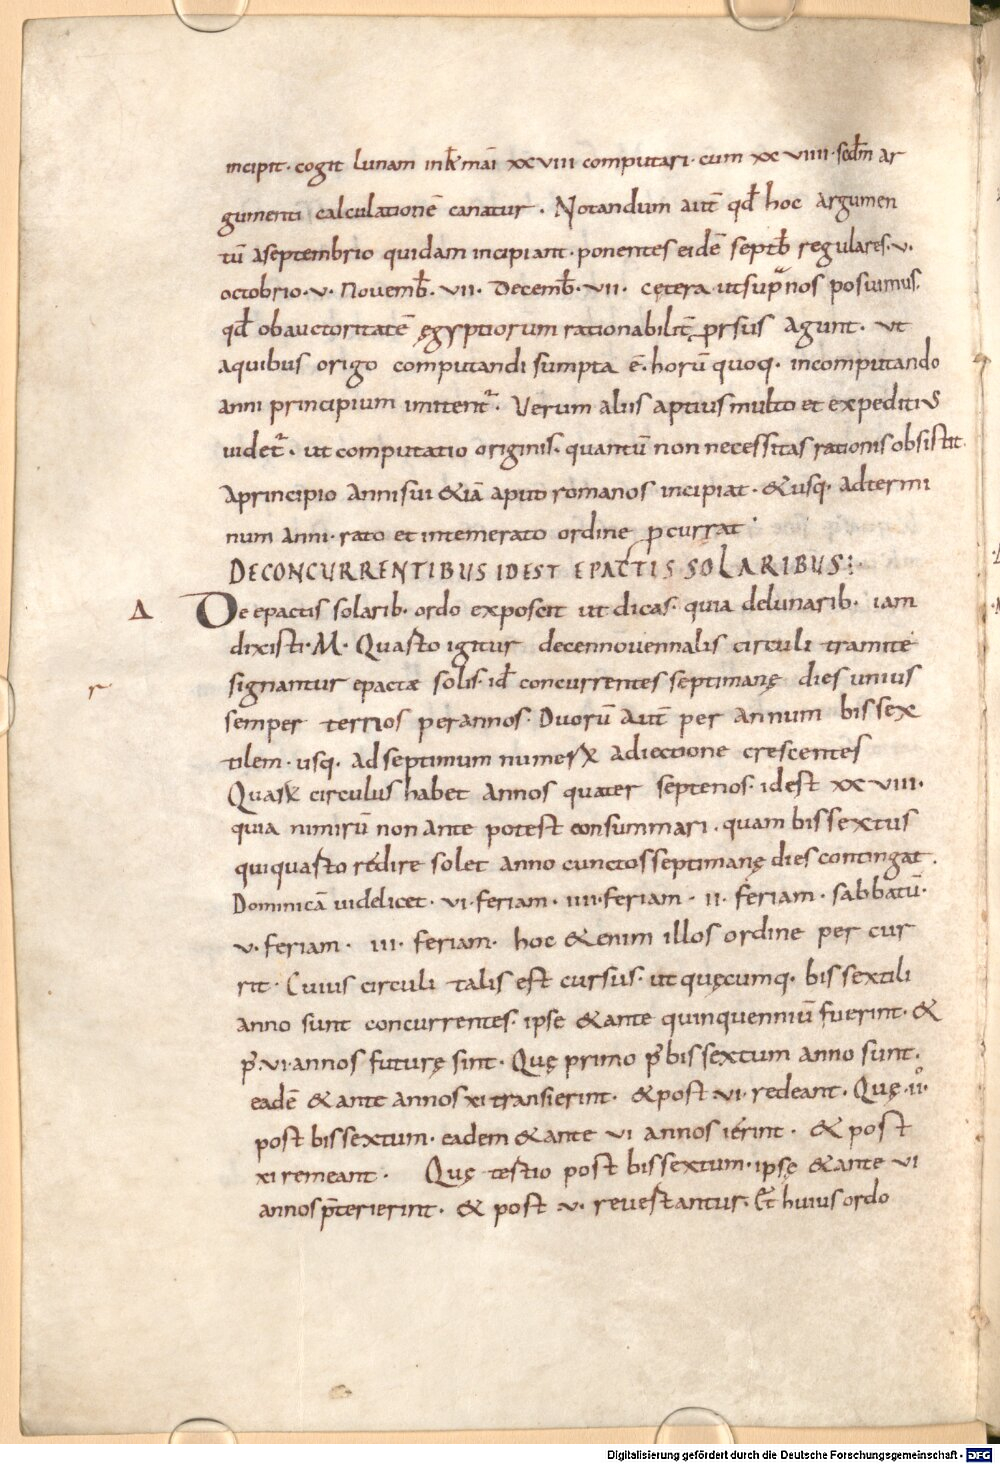 incipit· cogit lunam inkł mai xxviii computari· cum xxviiii· scdm ar
gumenti calculationē canatur· Notandum aut̄ qđ hoc argumen
tū aseptembrio quidam incipiant· ponentes eidē septb̄ regulares· v·
octobrio· v· Novemb̄· vii· Decemb̄· vii· cętera utsupnos posuimus·
qđ obauctoritatē ęgyptiorum rationabilit̄ prsus agunt· ut
aquibus origo computandi sumpta ē· horū quoq· incomputando
anni principium imitent̄· Verum aliis aptius multo et expeditius
uidet̄· ut computatio originis· quantū non necessitas rationis obsistit·
aprincipio annisui &iā aputo romanos incipiat· &usq· adtermi
num anni· rato et intemerato ordine pcurrat·
DECONCURRENTIBUS IDEST EPACTIS SOLARIBUS:·
Δ De epactis solarib· ordo exposcit ut dicas· quia delunarib· iam
dixisti· M· Quarto igitur decennovennalis circuli tramite
r signantur epactæ solis· id̄ concurrentes septimanę dies unius
semper ternos perannos· Duorū aut̄ per annum bissex
tilem· usq· adseptimum numeꝝ adiectione crescentes
Quaꝝ circulus habet annos quater septenos· idest xxviii·
quia nimirū non ante potest consummari· quam bissextus
quiquarto redire solet anno cunctos septimanę dies contingat·
Dominicā uidelicet· vi· feriam· iiii· feriam· ii· feriam· sabbatū·
v· feriam· iii· feriam· hoc &enim illos ordine per cur
rit· Cuius circuli talis est cursus· ut quęcumq· bissextili
anno sunt concurrentes· ipse &ante quinquenniū fuerint· &
p̄· vi· annos futurę sint· Quę primo p̄ bissextum anno sunt·
eadē &ante annos xi transierint· &post vi· redeant· Quę· iiº·
post bissextum· eadem &ante vi annos ierint· & post
xi remeant· Quę tertio post bissextum· ipsę &ante vi
annos p̄terierint· & post v· revertantur· Et huius ordo
Digitalisierung gefördert durch die Deutsche Forschungsgemeinschaft - DFG